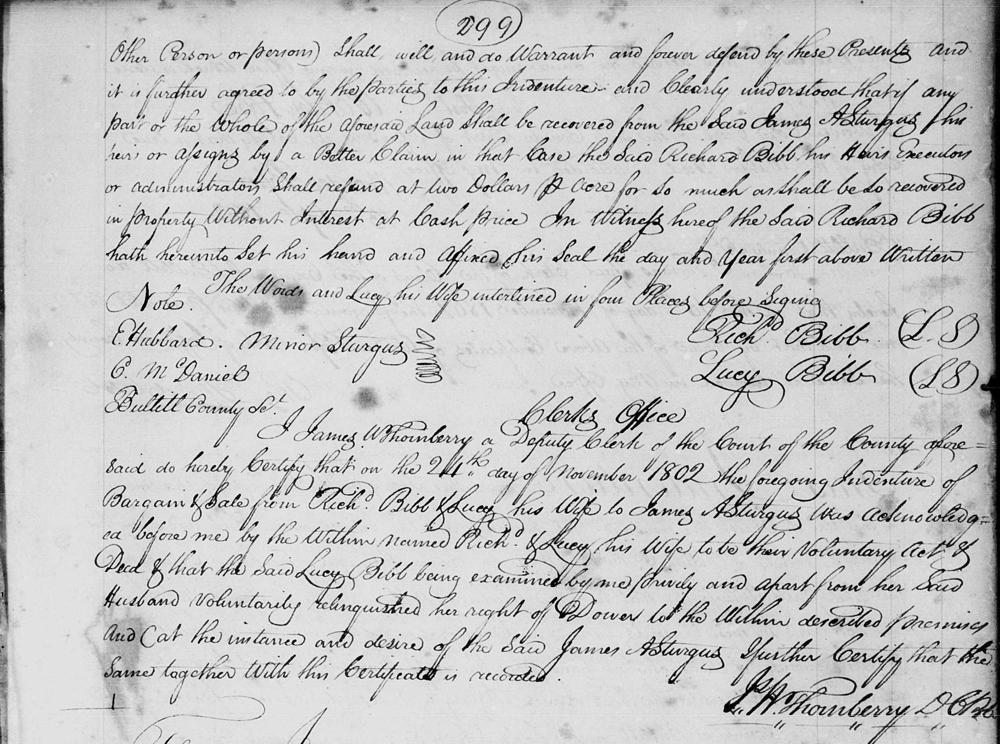 299
Other Person or persons) Shall well and do Warrant and forever defend by these Presents and
it is further agreed to by the parties to this Indenture and Clearly understood that if any
part or the Whole of the aforesaid Land Shall be recovered from the Said James A Sturgus his
heirs or assigns by a Better Claim in that Case the Said Richard Bibb his Heirs Executors
or administrators Shall refund at two Dollars ⅌ Acre for so much as shall be so recovered
in property Without Interest at Cash price In Witness hereof the Said Richard Bibb
hath hereunto Set his hand and Affixed his Seal the day and Year first above Written
Note. The Words and Lucy his Wife interlined in four Places before Signg
E Hubbard. Minor Sturgus Richd. Bibb (L.S)
C. McDaniel Lucy Bibb (LS)
Bullitt County Sct. Clerks Office
I James W Thornberry a Deputy Clerk of the Court of the County afore=
said do hereby Certify that on the 24th day of November 1802 the foregoing Indenture of
Bargain & Sale from Richd. Bibb & Lucy his Wife to James A Sturgus Was acknowledg=
ed before me by the Within named Richd. & Lucy his Wife to be their Voluntary Act &
Deed & that the Said Lucy Bibb being examined by me privily and apart from her Said
Husband Voluntarily relinquished her right of Dower to the Within described premises
And (at the instance and desire of the Said James A Sturgus I further Certify that the
Same together With this Certificate is recorded.
J. W. Thornberry D C